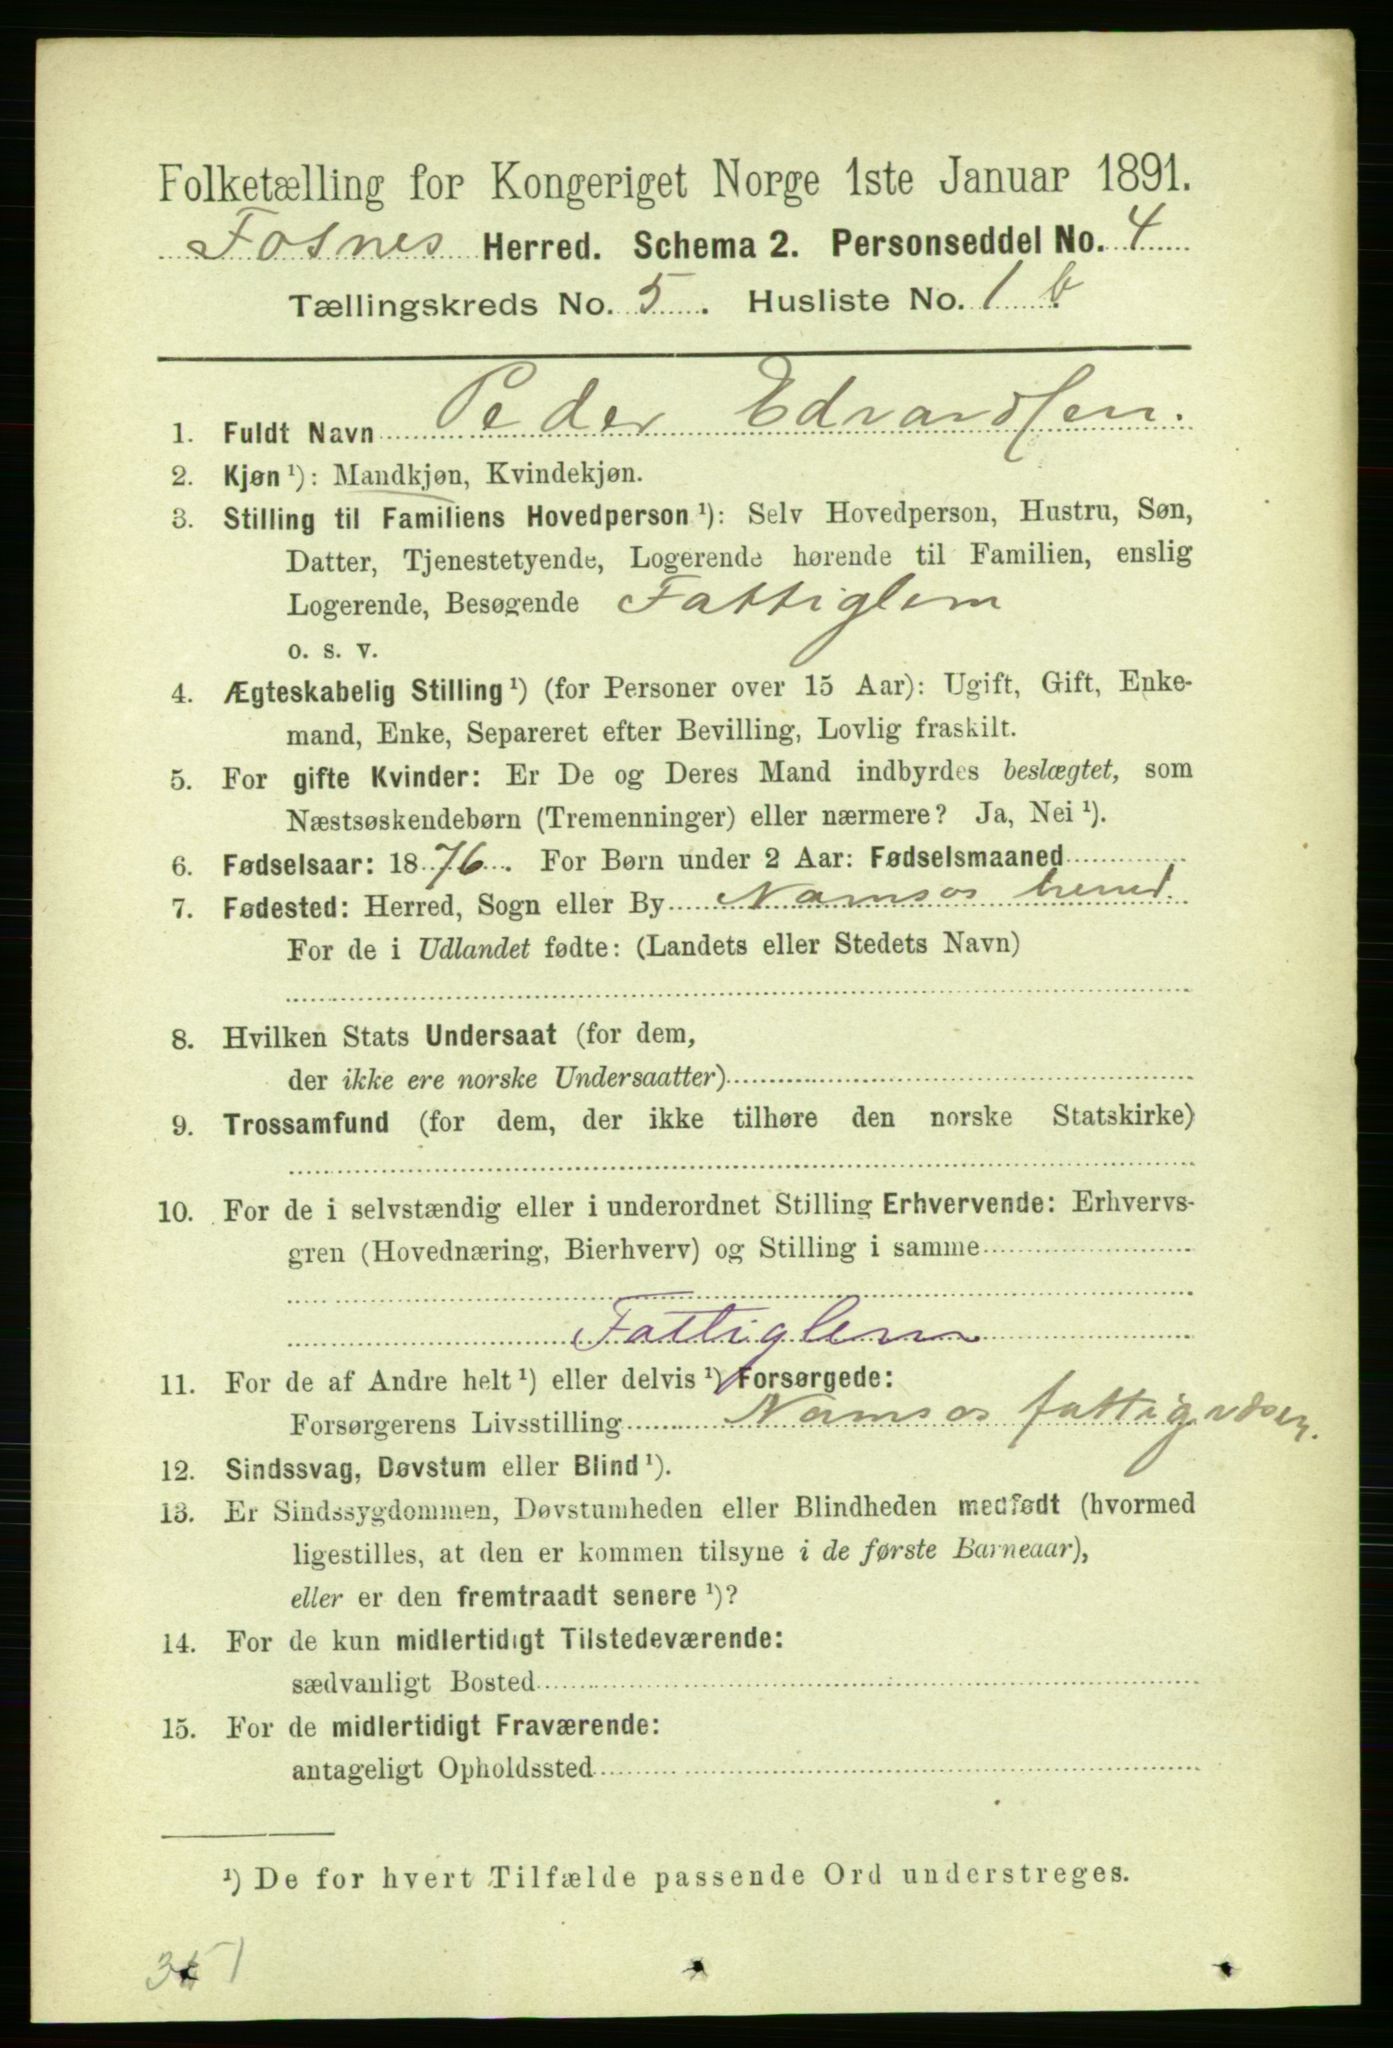 Folketælling for Kongeriget Norge 1ste Januar 1891.
Fosnes Herred. Schema 2. Personseddel No. 4
Tællingskreds No. 5. Husliste No. 1 b
1. Fuldt Navn Peder Edvardsen.
2. Kjøn ¹): Mandkjøn, Kvindekjøn.
3. Stilling til Familiens Hovedperson ¹): Selv Hovedperson, Hustru, Søn,
Datter, Tjenestetyende, Logerende hørende til Familien, enslig
Logerende, Besøgende Fattiglem
o. s. v.
4. Ægteskabelig Stilling ¹) (for Personer over 15 Aar): Ugift, Gift, Enke-
mand, Enke, Separeret efter Bevilling, Lovlig fraskilt.
5. For gifte Kvinder: Er De og Deres Mand indbyrdes beslægtet, som
Næstsøskendebørn (Tremenninger) eller nærmere? Ja, Nei ¹).
6. Fødselsaar: 1876. For Børn under 2 Aar: Fødselsmaaned
7. Fødested: Herred, Sogn eller By Namsos herred.
For de i Udlandet fødte: (Landets eller Stedets Navn)
8. Hvilken Stats Undersaat (for dem,
der ikke ere norske Undersaatter)
9. Trossamfund (for dem, der ikke tilhøre den norske Statskirke)
10. For de i selvstændig eller i underordnet Stilling Erhvervende: Erhvervs-
gren (Hovednæring, Bierhverv) og Stilling i samme
Fattiglem
11. For de af Andre helt ¹) eller delvis ¹) Forsørgede:
Forsørgerens Livsstilling Namsos fattigvæsen.
12. Sindssvag, Døvstum eller Blind ¹).
13. Er Sindssygdommen, Døvstumheden eller Blindheden medfødt (hvormed
ligestilles, at den er kommen tilsyne i de første Barneaar),
eller er den fremtraadt senere ¹)?
14. For de kun midlertidigt Tilstedeværende:
sædvanligt Bosted
15. For de midlertidigt Fraværende:
antageligt Opholdssted
¹) De for hvert Tilfælde passende Ord understreges.